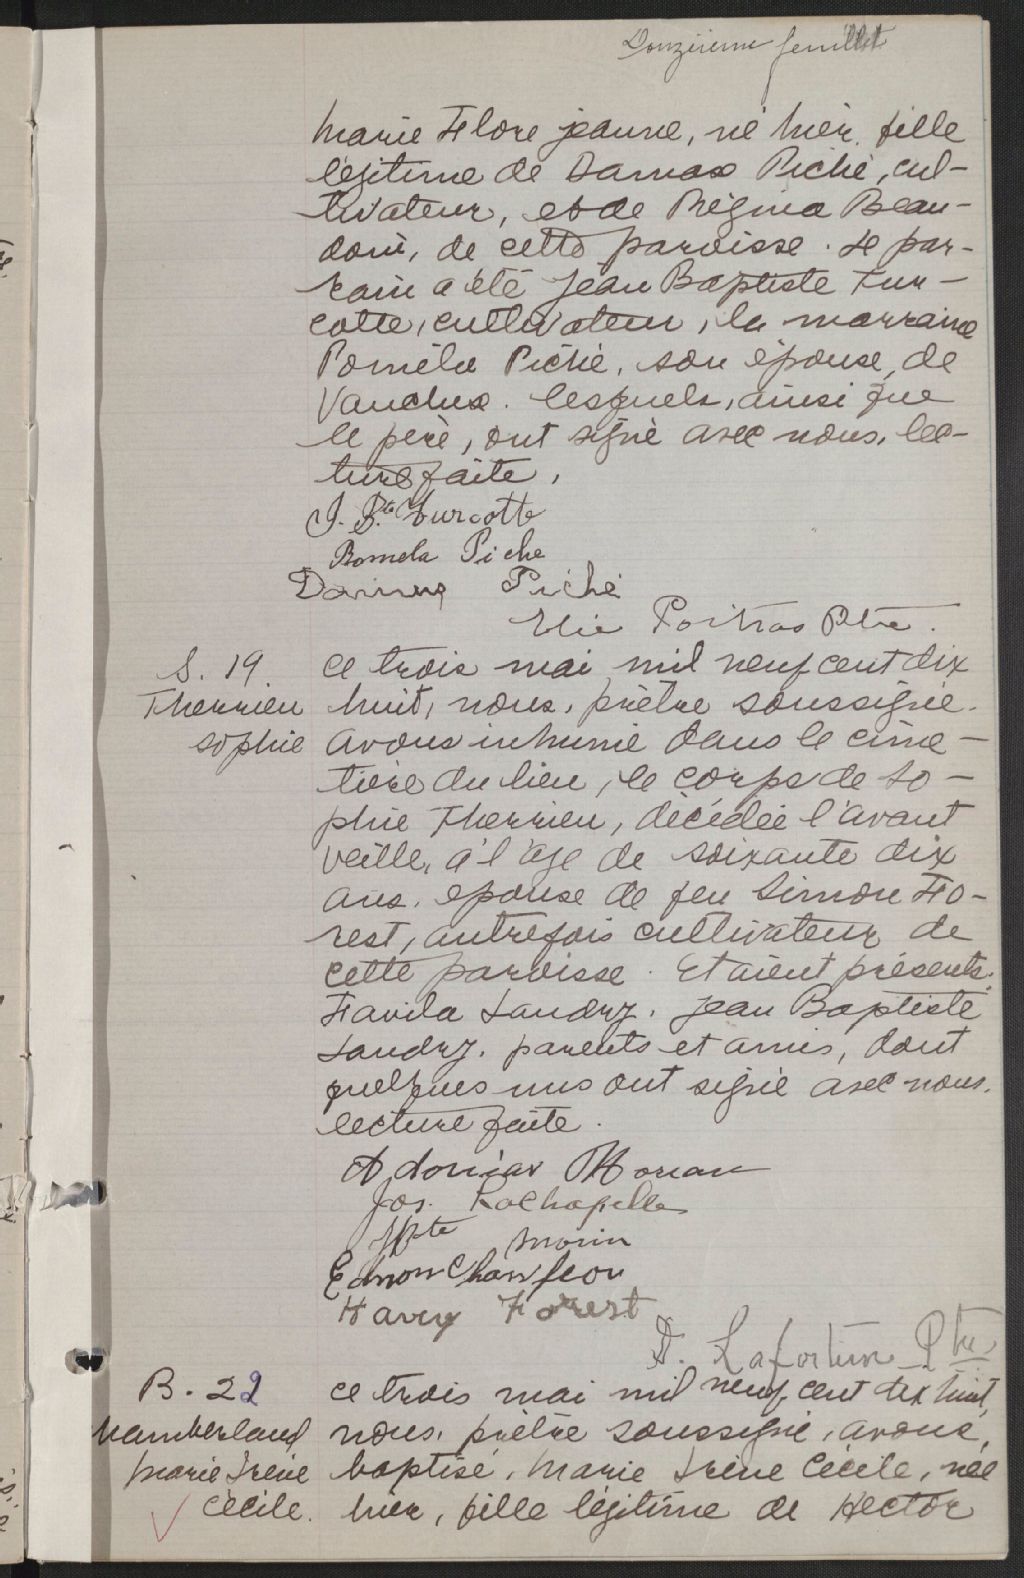 Douzième feuillet
Marie Flore Jeanne, né hier, fille
légitime de Damase Piché, cul-
tivateur, et de Régina Beau-
doin, de cette paroisse. Le par-
rain a été Jean Baptiste Tur-
cotte, cultivateur, la marraine
Poméla Piché, son épouse, de
Vaucluse. Lesquels, ainsi que
le père, ont signé avec nous, lec-
ture faite,
J. Bte Turcotte
Pomela Piche
Damase Piché
Elie Poitras Ptre.
S. 19.
Therrien
Sophie
Ce trois mai mil neuf cent dix
huit, nous, prêtre soussigné.
avons inhumé dans le cime-
tière du lieu, le corps de So-
phie Therrien, décédée l'avant
veille, à l'âge de soixante dix
ans, épouse de feu Simon Fo-
rest, autrefois cultivateur de
cette paroisse. Etaient présents:
Favila Landry, Jean Baptiste
Landry, parents et amis, dont
quelques uns ont signé avec nous.
lecture faite.
Adonias Morin
Jos. Lachapelle
JBte Morin
Edmon
Harry Forest
D. Lafortune Ptre
B. 22
Chamberland
Marie Irène
Cécile.
Ce trois mai mil neuf cent dix huit,
nous, prêtre soussigné, avons,
baptisé, Marie Irène Cécile, née
hier, fille légitime de Hector